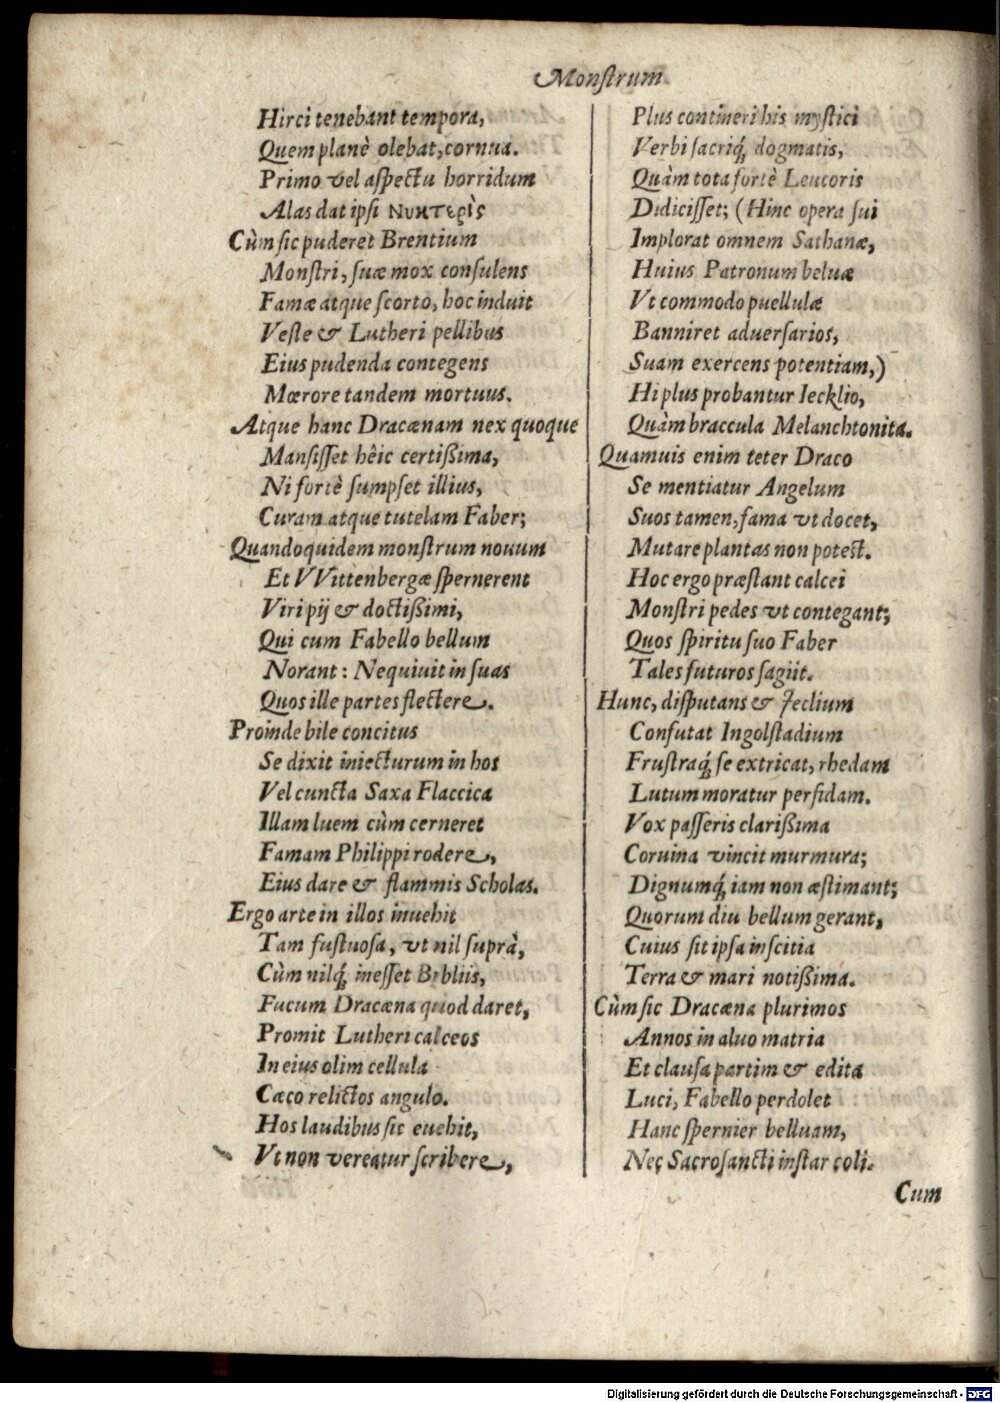 Monstrum
Hirci tenebant tempora,
Quem planè olebat, cornua.
Primo vel aspectu horridum
Alas dat ipsi Νυκτερὶς
Cùm sic puderet Brentium
Monstri, suæ mox consulens
Famæ atque scorto, hoc induit
Veste & Lutheri pellibus
Eius pudenda contegens
Mœrore tandem mortuus.
Atque hanc Dracænam nex quoque
Mansisset hêic certißima,
Ni fortè sumpset illius,
Curam atque tutelam Faber;
Quandoquidem monstrum nouum
Et VVittenbergæ spernerent
Viri pij & doctißimi,
Qui cum Fabello bellum
Norant: Nequiuit in suas
Quos ille partes flectere.
Proinde bile concitus
Se dixit iniecturum in hos
Vel cuncta Saxa Flaccica
Illam luem cùm cerneret
Famam Philippi rodere,
Eius dare & flammis Scholas.
Ergo arte in illos inuehit
Tam fustuosa, vt nil suprà,
Cùm nilq́; inesset Bibliis,
Fucum Dracæna quod daret,
Promit Lutheri calceos
In eius olim cellula
Cæco relictos angulo.
Hos laudibus sic euehit,
Vt non vereatur scribere,
Plus contineri his mystici
Verbi sacriq́; dogmatis,
Quàm tota fortè Leucoris
Didicisset; (Hinc opera sui
Implorat omnem Sathanæ,
Huius Patronum beluæ
Vt commodo puellulæ
Banniret aduersarios,
Suam exercens potentiam,)
Hi plus probantur Iecklio,
Quàm braccula Melanchtonita.
Quamuis enim teter Draco
Se mentiatur Angelum
Suos tamen, fama vt docet,
Mutare plantas non potest.
Hoc ergo præstant calcei
Monstri pedes vt contegant;
Quos spiritu suo Faber
Tales futuros sagiit.
Hunc, disputans & Jeclium
Confutat Ingolstadium
Frustraq́; se extricat, rhedam
Lutum moratur perfidam.
Vox passeris clarißima
Coruina vincit murmura;
Dignumq́; iam non æstimant;
Quorum diu bellum gerant,
Cuius sit ipsa inscitia
Terra & mari notißima.
Cùm sic Dracæna plurimos
Annos in aluo matria
Et clausa partim & edita
Luci, Fabello perdolet
Hanc spernier belluam,
Nec Sacrosancti instar coli.
Cum
Digitalisierung gefördert durch die Deutsche Forschungsgemeinschaft - DFG